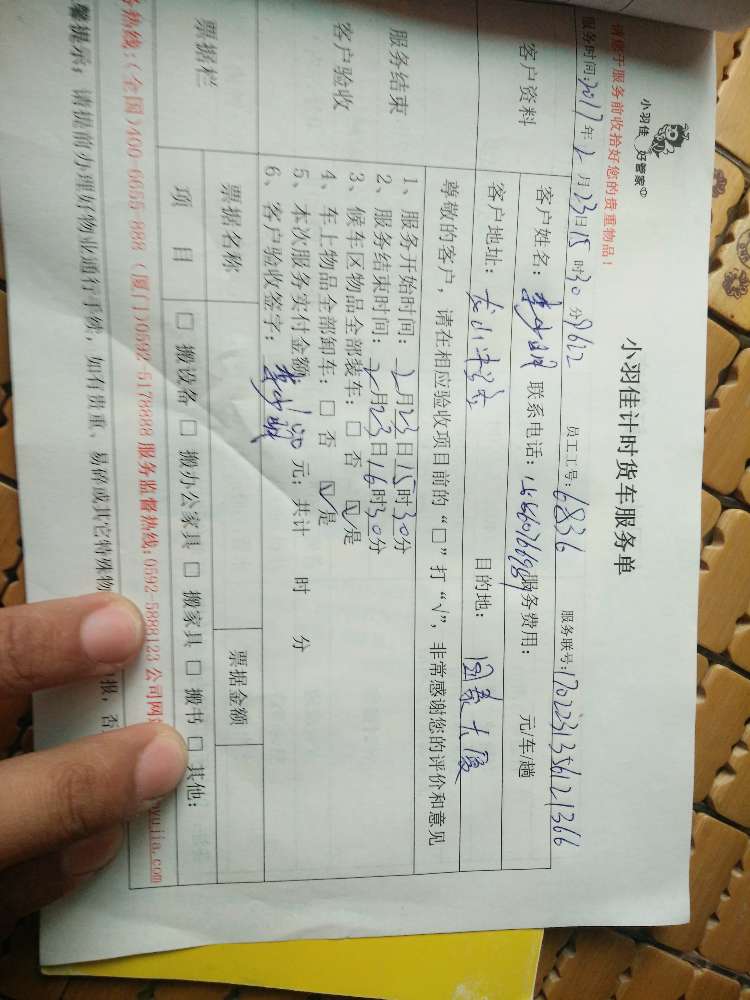 小羽佳 好管家
小羽佳计时货车服务单
请您于服务前收拾好您的贵重物品！
服务时间：2017年2月23日15时30分 员工工号：6836 服务联号：
客户资料
客户姓名： 联系电话： 服务费用： 元/车/趟
客户地址： 目的地： 国泰大厦
服务结束
客户验收
尊敬的客户，请在相应验收项目前的“□”打“√”，非常感谢您的评价和意见
1、服务开始时间：2月23日15时30分
2、服务结束时间：2月23日16时30分
3、候车区物品全部装车：□ 否 ☑是
4、车上物品全部卸车：□ 否 ☑是
5、本次服务实付金额： 元；共计 时 分
6、客户验收签字：
票据栏
票据名称 票据金额
项 目 □ 搬设备 □ 搬办公家具 □ 搬家具 □ 搬书 □ 其他：
务热线：(全国)400-6655-888 (厦门)0592-5178888 服务监督热线:0592-5888123 公司网 yujia.com
馨提示：请提前办理好物业通行手续，如有贵重、易碎或其它特殊物 报，否